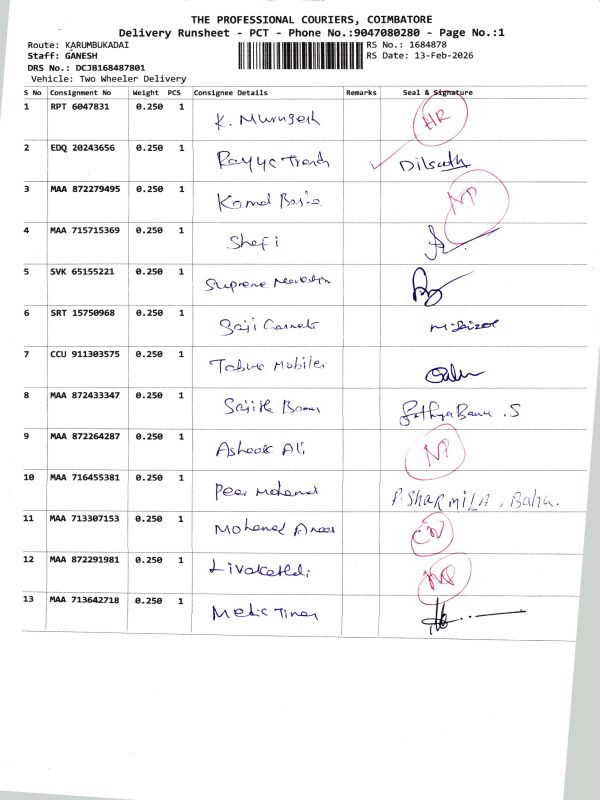 THE PROFESSIONAL COURIERS, COIMBATORE
Delivery Runsheet - PCT - Phone No.:9047080280 - Page No.:1
Route: KARUMBUKADAI RS No.: 1684878
Staff: GANESH RS Date: 13-Feb-2026
DRS No.: DCJB168487801
Vehicle: Two Wheeler Delivery
S No Consignment No Weight PCS Consignee Details Remarks Seal & Signature
1 RPT 6047831 0.250 1 K. Murugesh HR
2 EDQ 20243656 0.250 1 Rayya Trends Dilsath
3 MAA 872279495 0.250 1 Kamal Basha NP
4 MAA 715715369 0.250 1 Shefi
5 SVK 65155221 0.250 1 Supreme
6 SRT 15750968 0.250 1 Saji
7 CCU 911303575 0.250 1 Mobiles
8 MAA 872433347 0.250 1 Banu SathyaBanu . S
9 MAA 872264287 0.250 1 Ashook Ali NP
10 MAA 716455381 0.250 1 Peer Mohamed P. SHARMILA, Banu.
11 MAA 713307153 0.250 1 Mohamed
12 MAA 872291981 0.250 1 NP
13 MAA 713642718 0.250 1 Medic Times